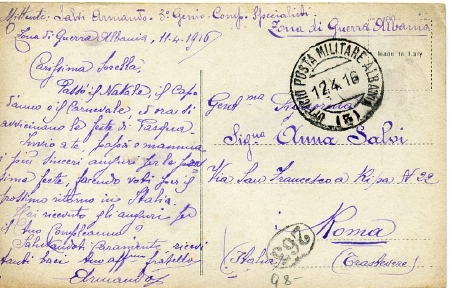 Mittente: Salvi Armando - 3º Genio - Comp. Specialisti
Zona di Guerra Albania
Zona di Guerra Albania, 11.4.1916
Made in Italy
UFFICIO POSTA MILITARE ALBANIA
12.4.16
(3)
Carissima Sorella
Passò il Natale, il Capo
d'anno e il Carnevale ed ora si
avvicinano le feste di Pasqua.
Invio a te papà e mamma
i più sinceri auguri per la
sima festa, facendo voti per il
prossimo ritorno in Italia.
Hai ricevuto gli auguri per
il tuo Compleanno?
Salutandoti caramente ricevi
tanti baci tuo aff.mo fratello
Armando
Gent.ma Signorina
Sig.na Anna Salvi
Via San Francesco a Ripa N 32
Roma
(Italia) (Trastevere)
263
98-